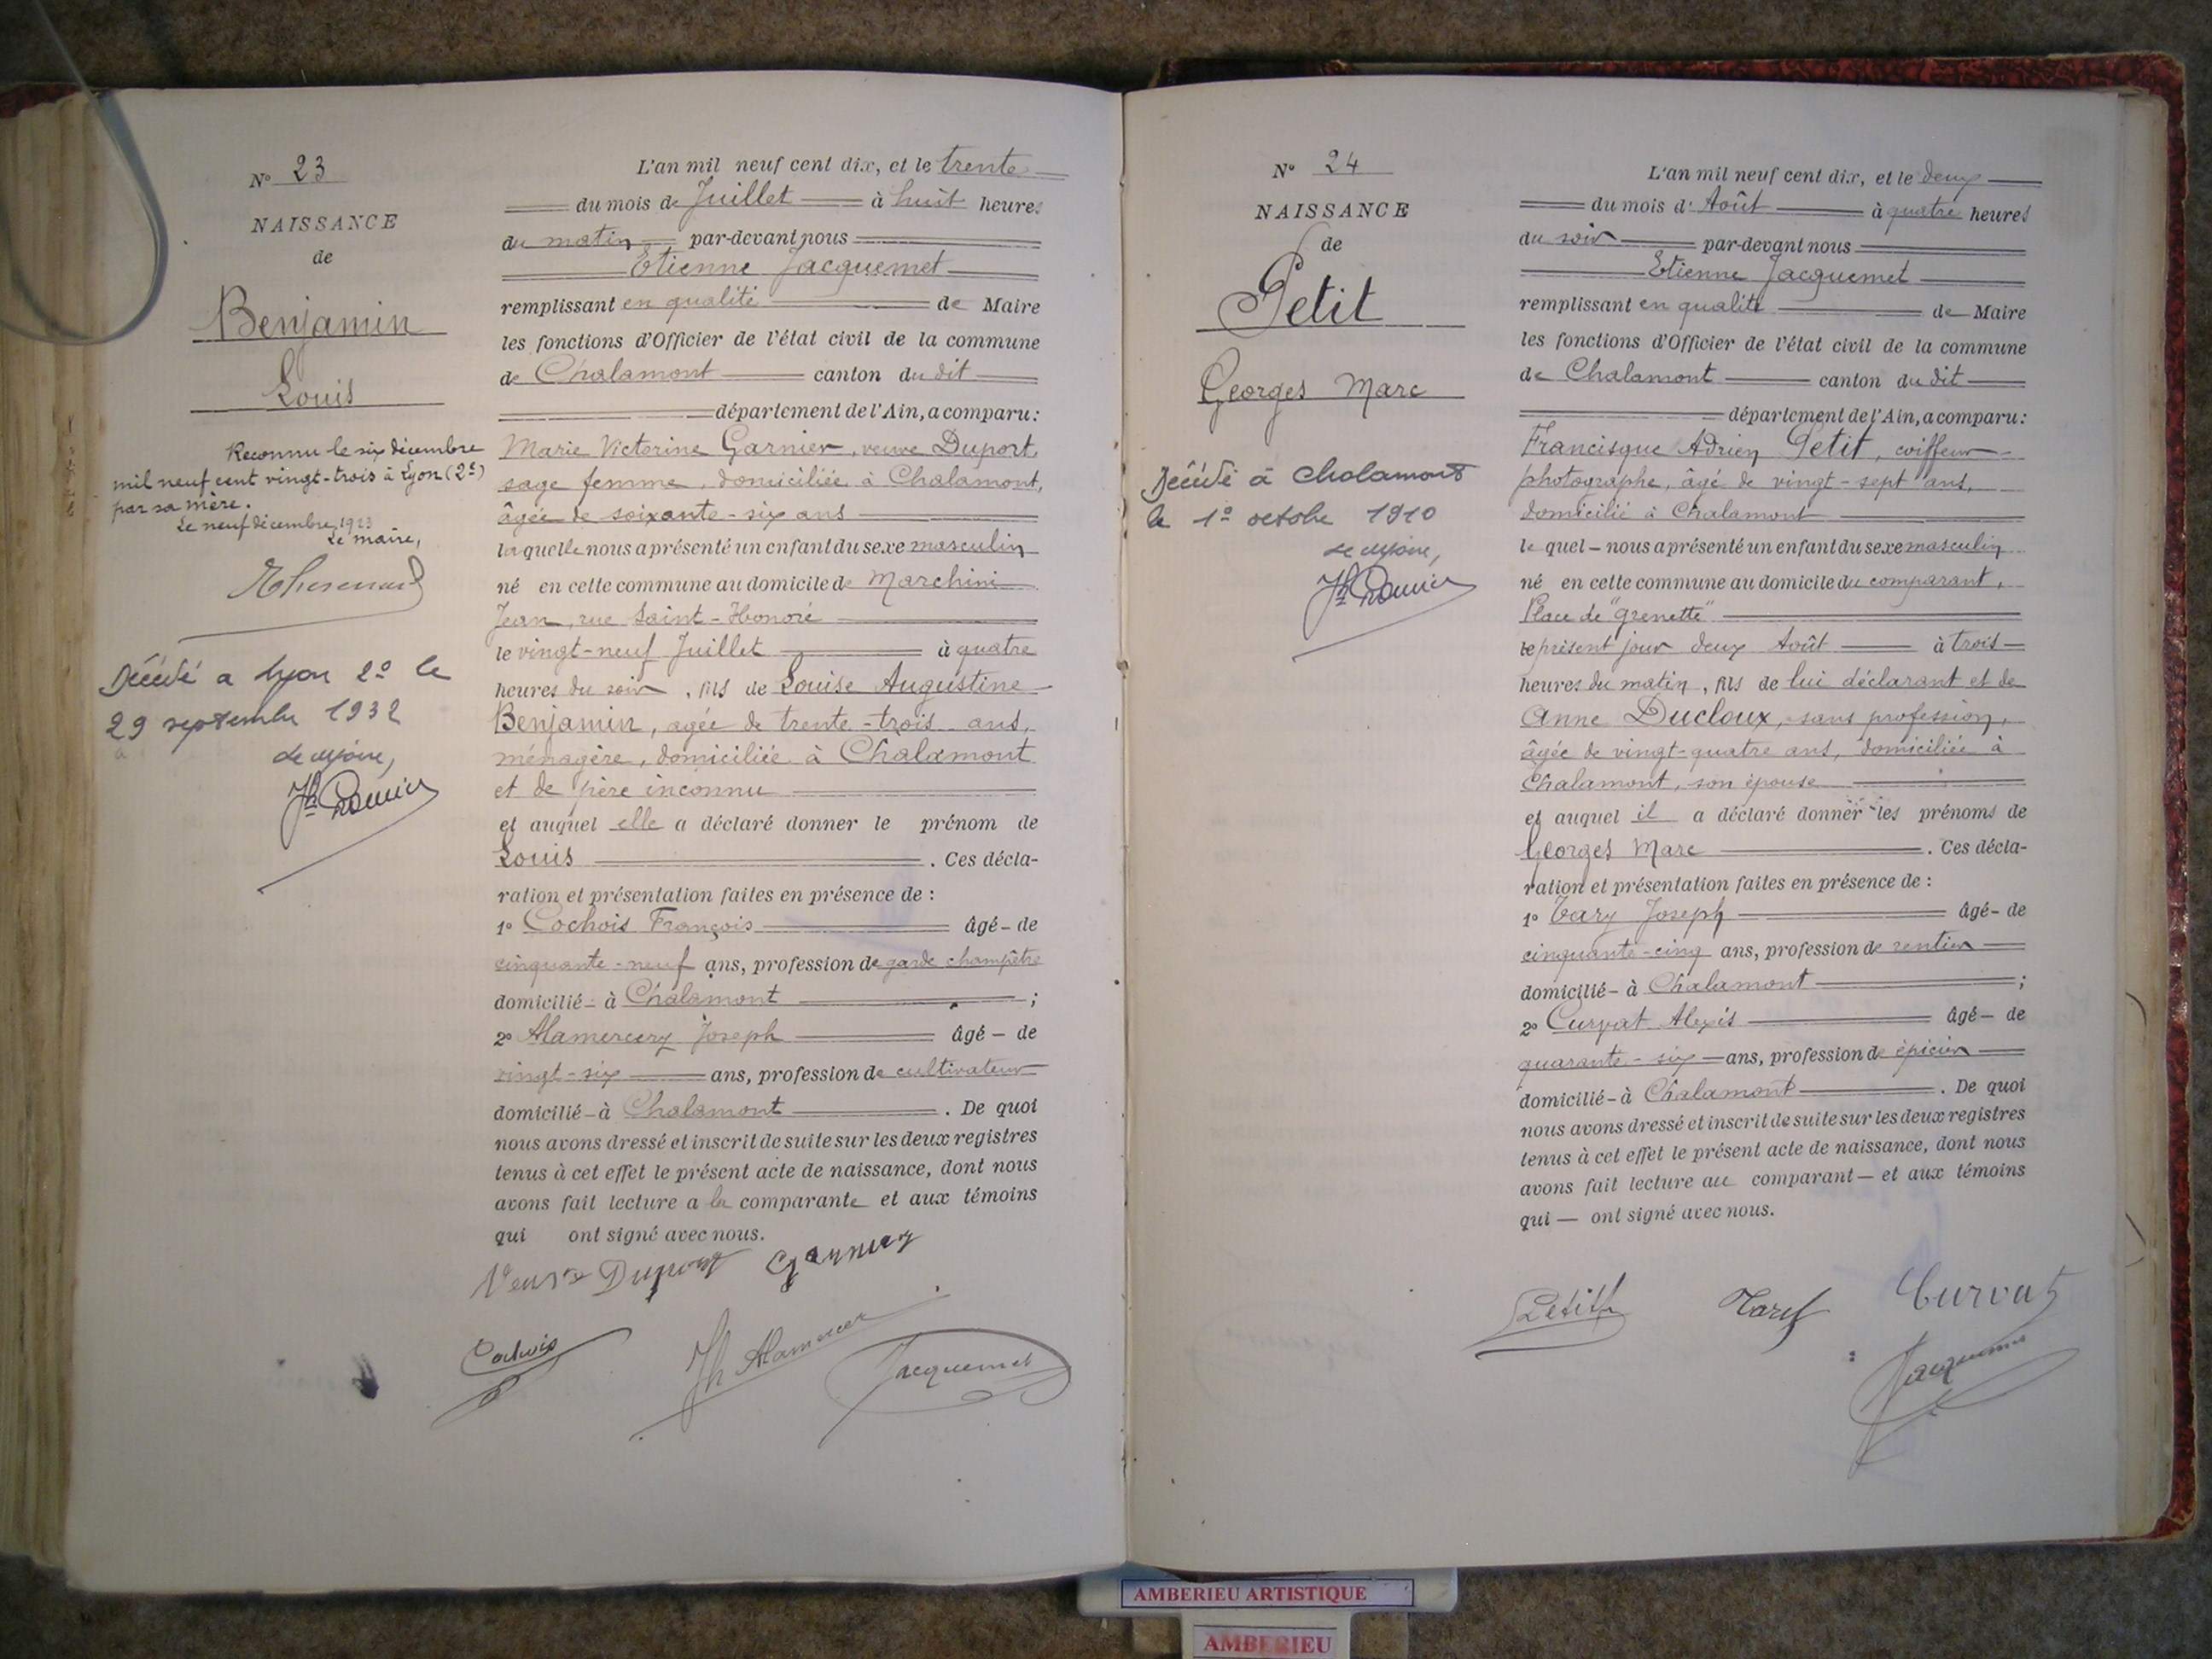 N° 23
NAISSANCE
de
Benjamin
Louis
Reconnu le six décembre
mil neuf cent vingt-trois à Lyon (2e)
par sa mère.
Le neuf décembre 1923
Le maire,
Décédé a Lyon 2e le
29 septembre 1932
Le Maire,
L'an mil neuf cent dix, et le trente
du mois de Juillet à huit heures
du matin, par-devant nous
Etienne Jacquemet
remplissant en qualité de Maire
les fonctions d'Officier de l'état civil de la commune
de Chalamont canton du dit
département de l'Ain, a comparu:
Marie Victorine Garnier, veuve Duport,
sage femme, domiciliée à Chalamont,
âgée de soixante-six ans
laquelle nous a présenté un enfant du sexe masculin
né en cette commune au domicile de Marchini
Jean, rue Saint-Honoré
le vingt-neuf Juillet à quatre
heures du soir, fils de Louise Augustine
Benjamin, agée de trente-trois ans,
ménagère, domiciliée à Chalamont
et de père inconnu
et auquel elle a déclaré donner le prénom de
Louis. Ces décla-
ration et présentation faites en présence de :
1° Cochois François âgé - de
cinquante-neuf ans, profession de garde champêtre
domicilié - à Chalamont ;
2° Alamercery Joseph âgé - de
vingt-six ans, profession de cultivateur
domicilié - à Chalamont. De quoi
nous avons dressé et inscrit de suite sur les deux registres
tenus à cet effet le présent acte de naissance, dont nous
avons fait lecture a la comparante et aux témoins
qui ont signé avec nous.
Veuve Duport Garnier
Cochois
Jh Alamercer
Jacquemet
N° 24
NAISSANCE
de
Petit
Georges Marc
Décédé à Chalamont
le 1° octobre 1910
Le Maire,
L'an mil neuf cent dix, et le deux
du mois d'Août à quatre heures
du soir par-devant nous
Etienne Jacquemet
remplissant en qualité de Maire
les fonctions d'Officier de l'état civil de la commune
de Chalamont canton du dit
département de l'Ain, a comparu:
Francisque Adrien Petit, coiffeur
photographe, âgé de vingt-sept ans,
domicilié à Chalamont
lequel - nous a présenté un enfant du sexe masculin
né en cette commune au domicile du comparant,
Place de "grenette"
le présent jour deux Août à trois
heures du matin, fils de lui déclarant et de
Anne Ducloux, sans profession,
âgée de vingt-quatre ans, domiciliée à
Chalamont, son épouse
et auquel il a déclaré donner les prénoms de
Georges Marc. Ces décla-
ration et présentation faites en présence de :
1° Joseph âgé - de
cinquante-cinq ans, profession de rentier
domicilié - à Chalamont ;
2° Curvat Alexis âgé - de
quarante-six ans, profession d'épicier
domicilié - à Chalamont. De quoi
nous avons dressé et inscrit de suite sur les deux registres
tenus à cet effet le présent acte de naissance, dont nous
avons fait lecture au comparant - et aux témoins
qui - ont signé avec nous.
Petit Curvat
Jacquemet
AMBERIEU ARTISTIQUE
AMBERIEU